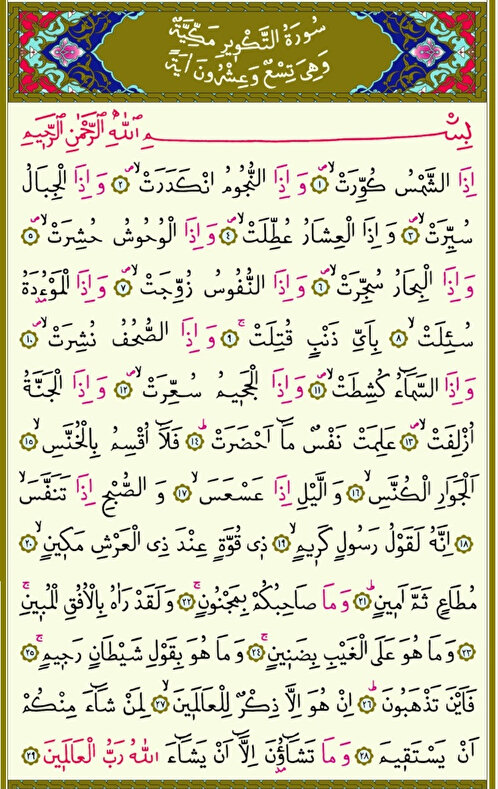 سُورَةُ التَّكْوِيرِ مَكِّيَّةٌ
وَهِيَ تِسْعٌ وَعِشْرُونَ اٰيَةً
بِسْــــــــــــمِ اللّٰهِ الرَّحْمٰنِ الرَّحِيمِ
اِذَا الشَّمْسُ كُوِّرَتْۙ ﴿١﴾ وَاِذَا النُّجُومُ انْكَدَرَتْۙ ﴿٢﴾ وَاِذَا الْجِبَالُ
سُيِّرَتْۙ ﴿٣﴾ وَاِذَا الْعِشَارُ عُطِّلَتْۙ ﴿٤﴾ وَاِذَا الْوُحُوشُ حُشِرَتْۙ ﴿٥﴾
وَاِذَا الْبِحَارُ سُجِّرَتْۙ ﴿٦﴾ وَاِذَا النُّفُوسُ زُوِّجَتْۙ ﴿٧﴾ وَاِذَا الْمَوْءُ۫دَةُ
سُئِلَتْۙ ﴿٨﴾ بِاَيِّ ذَنْبٍ قُتِلَتْۚ ﴿٩﴾ وَاِذَا الصُّحُفُ نُشِرَتْۙ ﴿١٠﴾
وَاِذَا السَّمَٓاءُ كُشِطَتْۙ ﴿١١﴾ وَاِذَا الْجَحِيمُ سُعِّرَتْۙ ﴿١٢﴾ وَاِذَا الْجَنَّةُ
اُزْلِفَتْۙ ﴿١٣﴾ عَلِمَتْ نَفْسٌ مَٓا اَحْضَرَتْۜ ﴿١٤﴾ فَلَٓا اُقْسِمُ بِالْخُنَّسِۙ ﴿١٥﴾
اَلْجَوَارِ الْكُنَّسِۙ ﴿١٦﴾ وَالَّيْلِ اِذَا عَسْعَسَۙ ﴿١٧﴾ وَالصُّبْحِ اِذَا تَنَفَّسَۙ
﴿١٨﴾ اِنَّهُ لَقَوْلُ رَسُولٍ كَرِيمٍۙ ﴿١٩﴾ ذِي قُوَّةٍ عِنْدَ ذِي الْعَرْشِ مَكِينٍۙ ﴿٢٠﴾
مُطَاعٍ ثَمَّ اَمِينٍۜ ﴿٢١﴾ وَمَا صَاحِبُكُمْ بِمَجْنُونٍۚ ﴿٢٢﴾ وَلَقَدْ رَاٰهُ بِالْاُفُقِ الْمُبِينِۚ
﴿٢٣﴾ وَمَا هُوَ عَلَى الْغَيْبِ بِضَنِينٍۚ ﴿٢٤﴾ وَمَا هُوَ بِقَوْلِ شَيْطَانٍ رَجِيمٍۚ ﴿٢٥﴾
فَاَيْنَ تَذْهَبُونَۜ ﴿٢٦﴾ اِنْ هُوَ اِلَّا ذِكْرٌ لِلْعَالَمِينَۙ ﴿٢٧﴾ لِمَنْ شَٓاءَ مِنْكُمْ
اَنْ يَسْتَقِيمَ ﴿٢٨﴾ وَمَا تَشَٓاؤُ۫نَ اِلَّٓا اَنْ يَشَٓاءَ اللّٰهُ رَبُّ الْعَالَمِينَ ﴿٢٩﴾